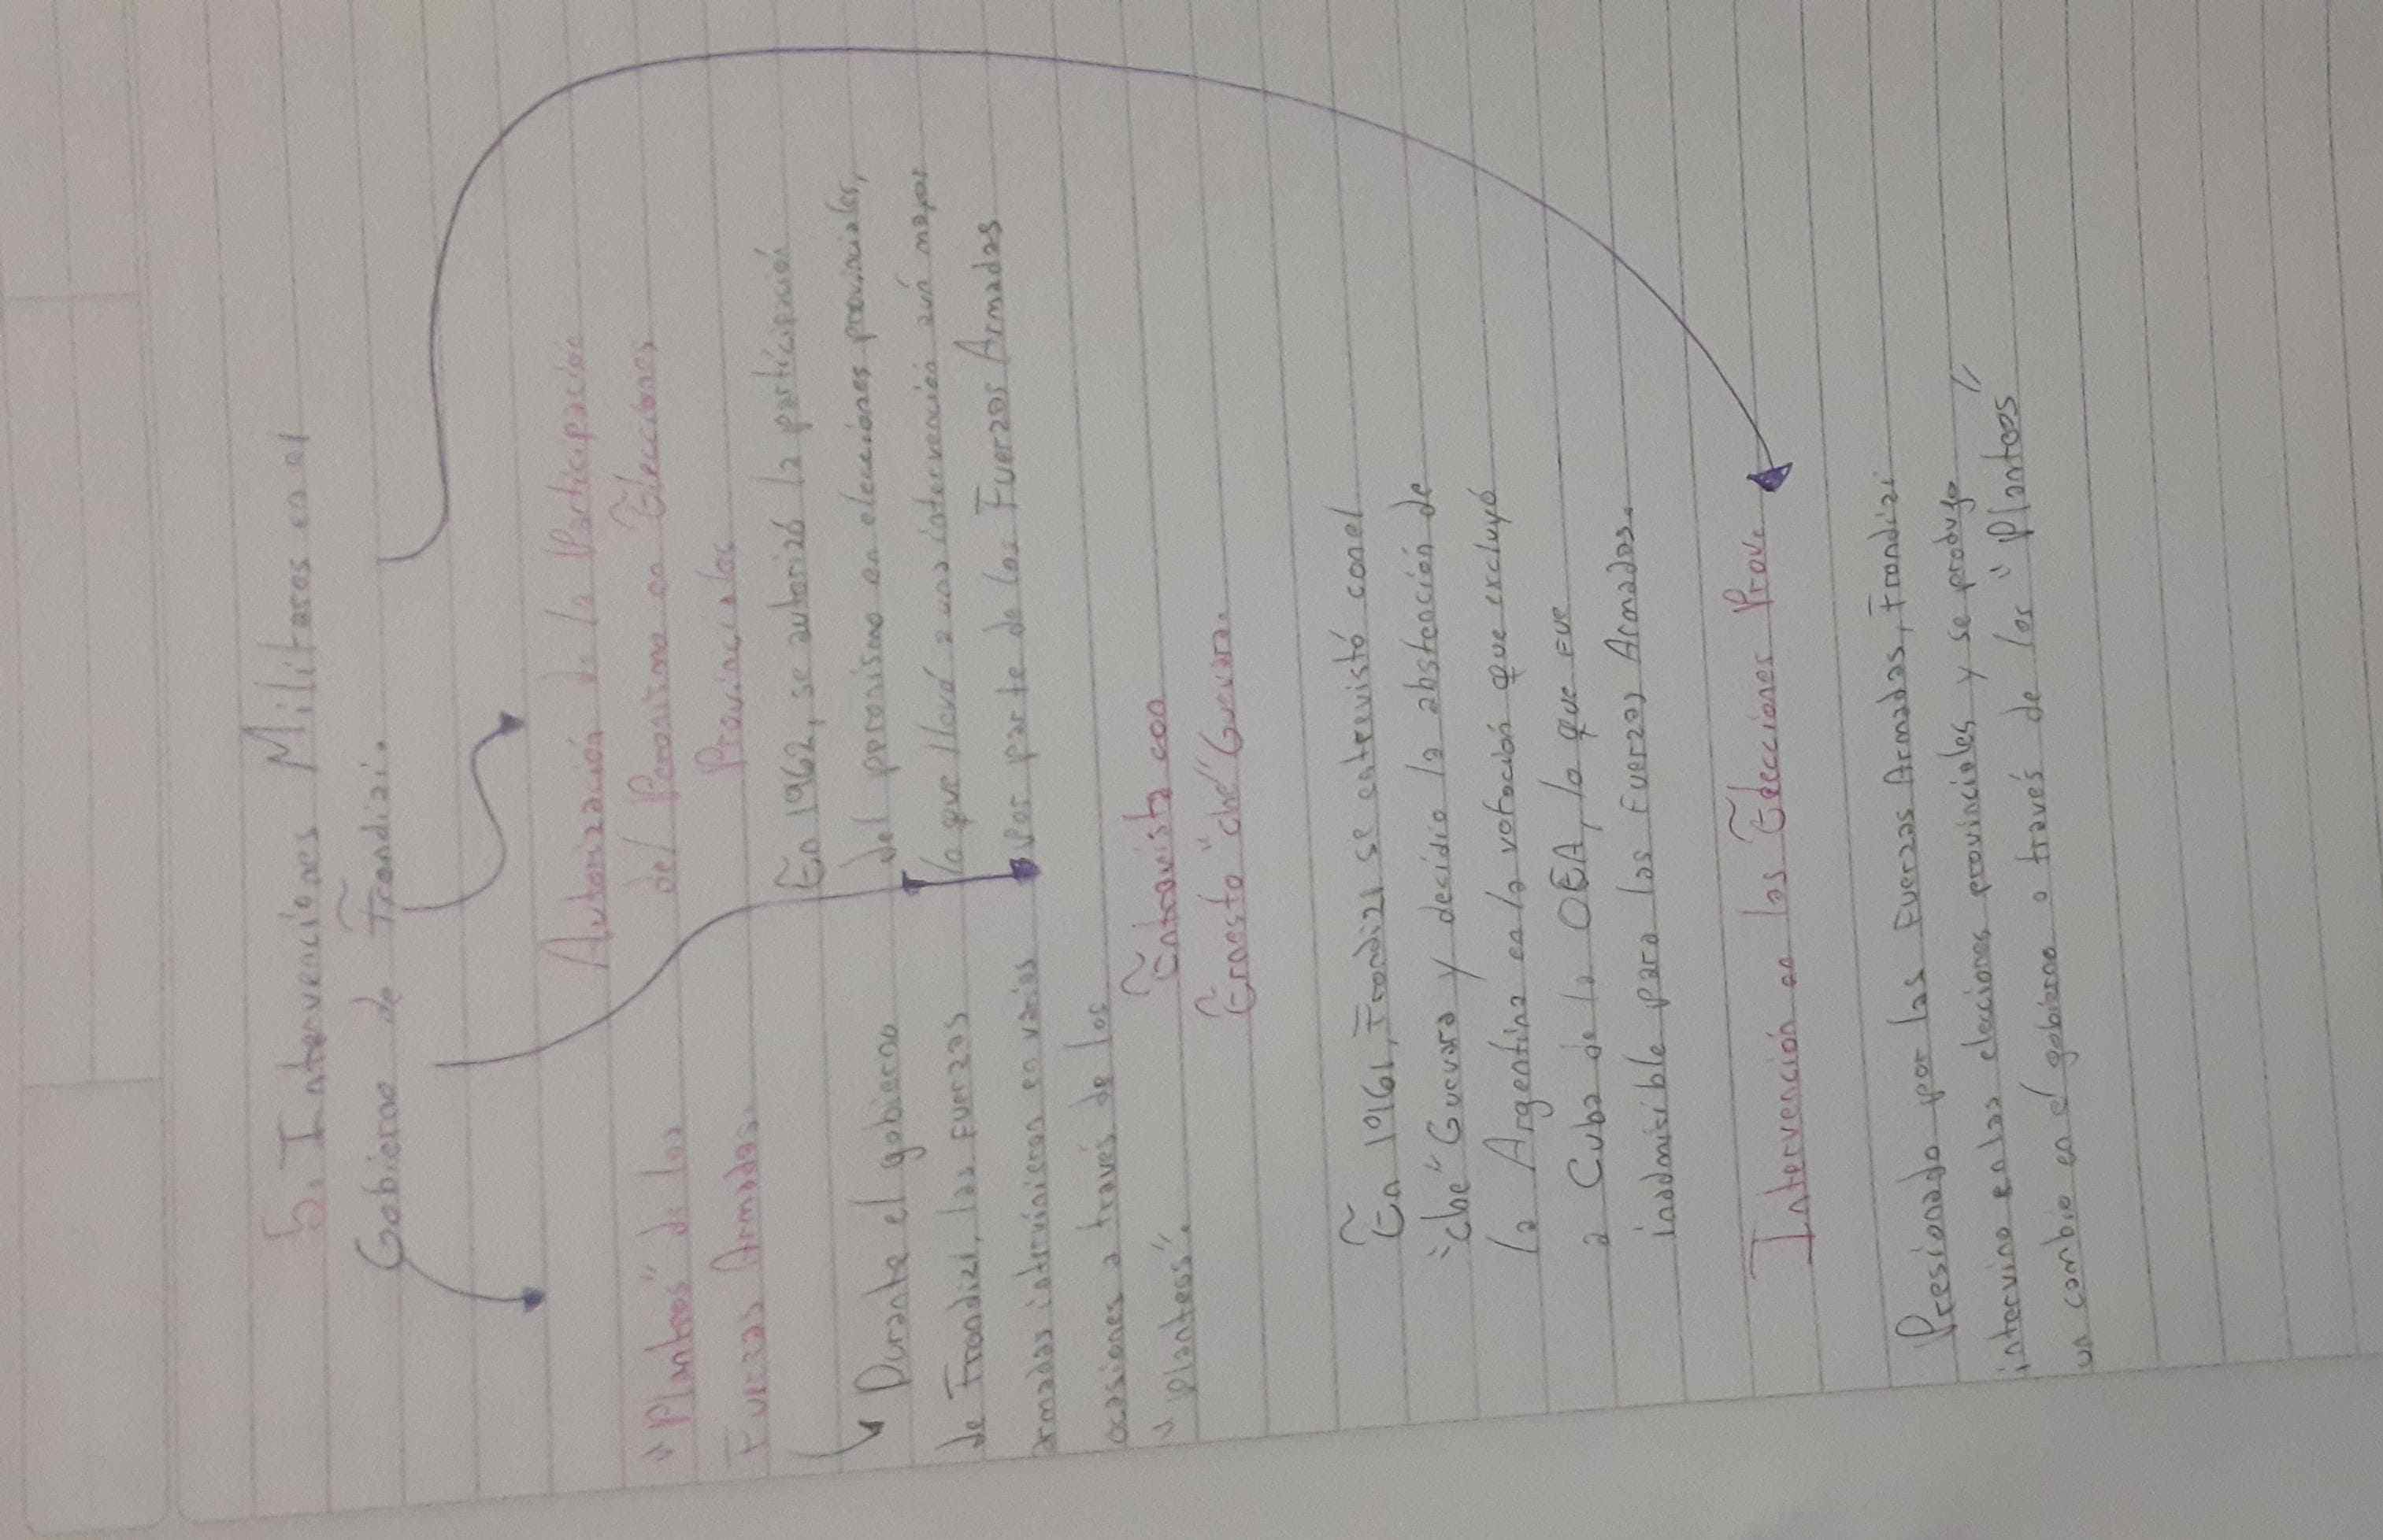 5. Intervenciones Militares en el
Gobierno de Frondizi.
"Planteos" de las
Fuerzas Armadas.
↳ Durante el gobierno
de Frondizi, las Fuerzas
armadas intervinieron en varias
ocasiones a través de los
"planteos".
Autorización de la Participación
del Peronismo en Elecciones
Provinciales
En 1962, se autorizó la participación
del peronismo en elecciones provinciales,
lo que llevó a una intervención aún mayor
por parte de las Fuerzas Armadas
Entrevista con
Ernesto "che" Guevara.
En 1961, Frondizi se entrevistó con el
"che" Guevara y decidio la abstención de
la Argentina en la votación que excluyó
a Cuba de la OEA, lo que fue
inadmisible para las Fuerzas Armadas.
Intervención en las Elecciones Prov.
Presionado por las Fuerzas Armadas, Frondizi
intervino en las elecciones provinciales y se produjo
un cambio en el gobierno a través de los "Planteos"